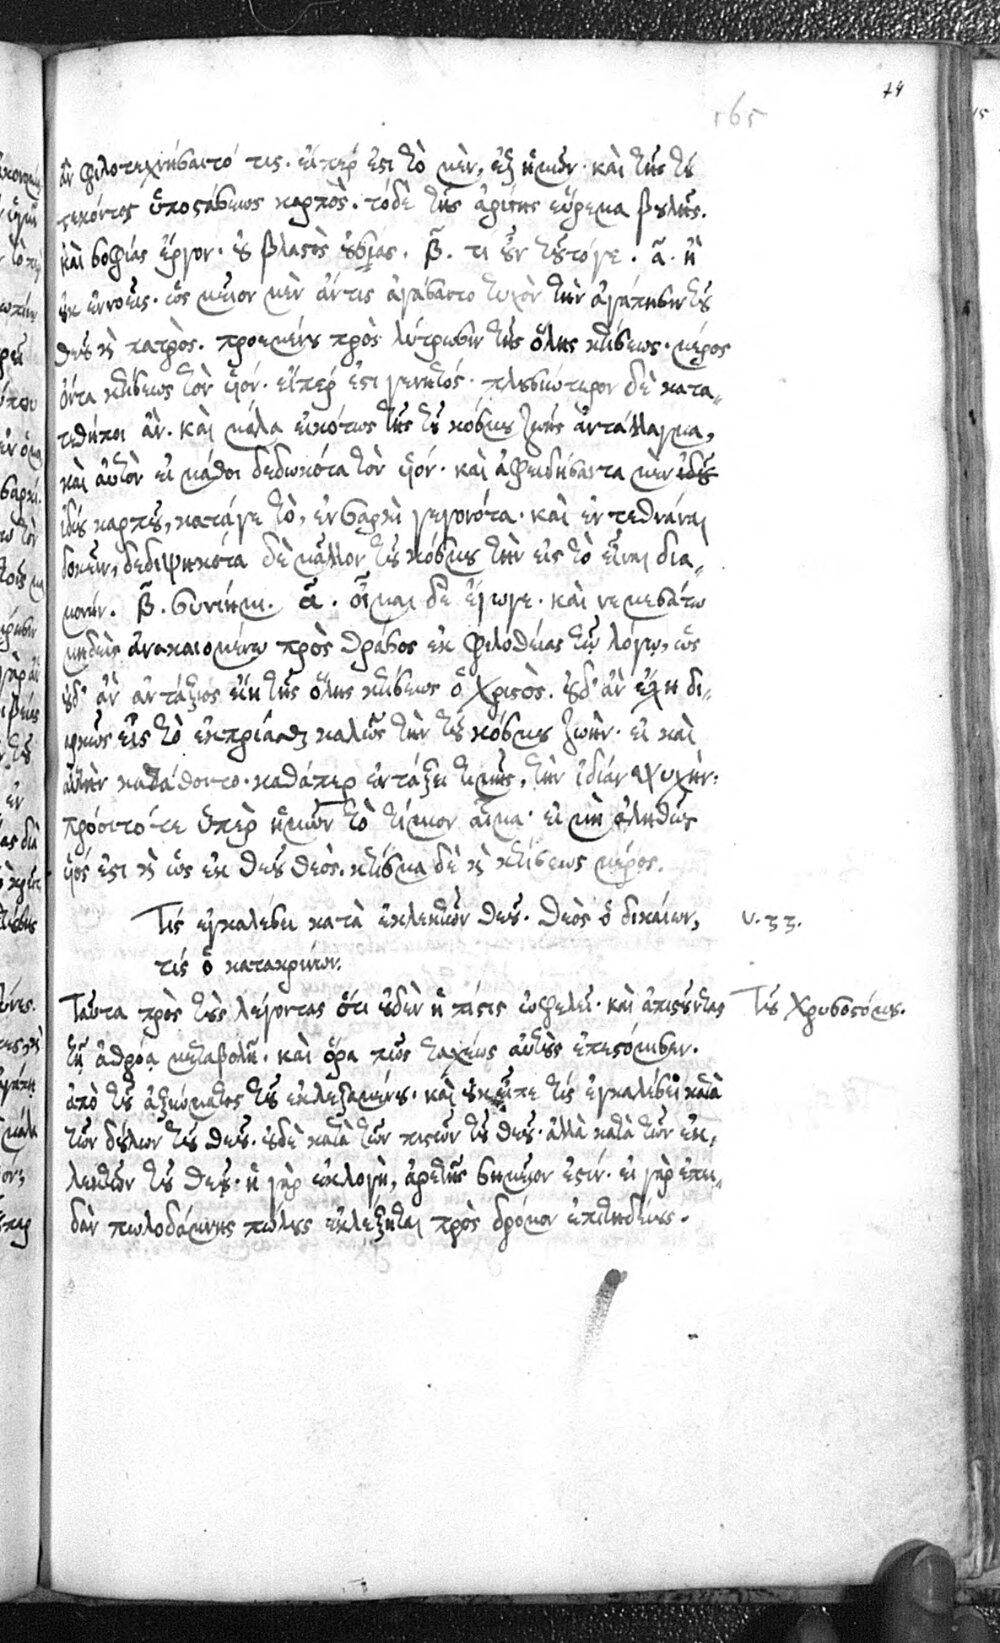 74
165
ἂν φιλοτεχνήσαιτό τις. εἴπερ ἐστι τὸ μὲν, ἐξ ἡμῶν. καὶ τῆς τοῦ
τεκόντος ὑποστάσεως καρπὸς. τόδὲ τῆς ἀρίστης εὕρεμα βουλῆς.
καὶ σοφίας ἔργον. οὐ βλαστὸς οὐσίας. β̅. τι οὖν τοῦτόγε. α̅. ἢ
οὐκ ἐννοεῖς. ὡς μεῖον μὲν ἄντις ἀγάσαιτο τυχὸν τὴν ἀγάπησιν τοῦ
θεοῦ κ πατρὸς. προεμένου πρὸς λύτρωσιν τῆς ὅλης κτίσεως. μέρος
ὄντα κτίσεως τὸν υἱόν. εἴπερ ἐστι γενητός. πλουσιώτερον δὲ κατα-
τεθήποι ἂν. καὶ μάλα εἰκότως τῆς τοῦ κόσμου ζωῆς ἀντάλλαγμα,
καὶ αὐτὸν εἰ μάθοι δεδωκότα τὸν υἱόν. καὶ ἀφειδήσαντα μὲν
ἰδίου καρποῦ, κατάγε τὸ, ἐν σαρκὶ γεγονότα. καὶ ἐν τεθνάναι
δοκεῖν, δεδιψηκότα δὲ μᾶλλον τοῦ κόσμου τὴν εἰς τὸ εἶναι δια-
μονήν. β̅. συνίημι. α̅. οἶμαι δε ἔγωγε. καὶ νεμεσάτω
μηδεὶς ἀνακαιομένῳ πρὸς θράσος ἐκ φιλοθεΐας τῷ λόγῳ, ὡς
οὐδ' ἂν ἀντάξιος εἴη τῆς ὅλης κτίσεως ὁ χριστὸς. οὐδ' ἂν ἔχῃ δι-
αρκῶς εἰς τὸ ἐκπρίασθαι καλῶς τὴν τοῦ κόσμου ζωὴν. εἰ καὶ
αὐτὴν κατάθοιτο. καθάπερ ἐν τάξει τιμῆς, τὴν ἰδίαν ψυχὴν:
πρόοιτό τε ὑπὲρ ἡμῶν τὸ τίμιον αἷμα. εἰ μὴ ἀληθῶς
υἱός ἐστι κ ὡς ἐκ θεοῦ θεὸς. κτίσμα δὲ κ κτίσεως μέρος.
Τίς ἐγκαλέσει κατὰ ἐκλεκτῶν θεοῦ. θεὸς ὁ δικαίων, υ. 33.
τίς ὁ κατακρίνων.
Ταῦτα πρὸς τοὺς λέγοντας ὅτι οὐδὲν ἡ πίστις ὠφελεῖ. καὶ ἀπιστοῦντας Τοῦ Χρυσοστόμου.
τῇ ἀθρόᾳ μεταβολῇ. καὶ ὅρα πῶς ταχέως αὐτοὺς ἐπεστόμισεν.
ἀπὸ τοῦ ἀξιώματος τοῦ ἐκλεξαμένου. καὶ οὐκ εἶπε τίς ἐγκαλέσει κατὰ
τῶν δούλων τοῦ θεοῦ. οὐδὲ κατὰ τῶν πιστῶν τοῦ θεοῦ. ἀλλὰ κατὰ τῶν ἐκ-
λεκτῶν τοῦ θεοῦ. ἡ γὰρ ἐκλογὴ, ἀρετῆς σημεῖον ἐστίν. εἰ γὰρ ἐπει-
δὰν πωλοδάμνης πώλους ἐκλέξηται πρὸς δρόμον ἐπιτηδείους.